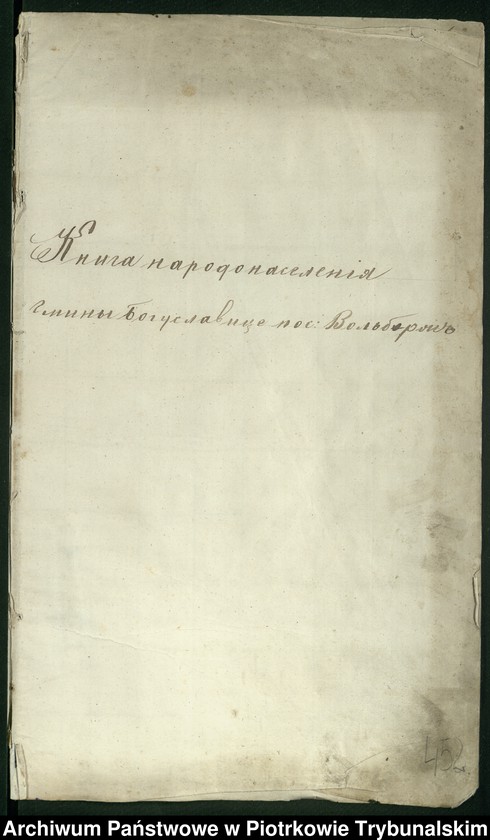 Книга народонаселенія
гмины Богуславице пос: Вольборжъ
452
Archiwum Państwowe w Piotrkowie Trybunalskim